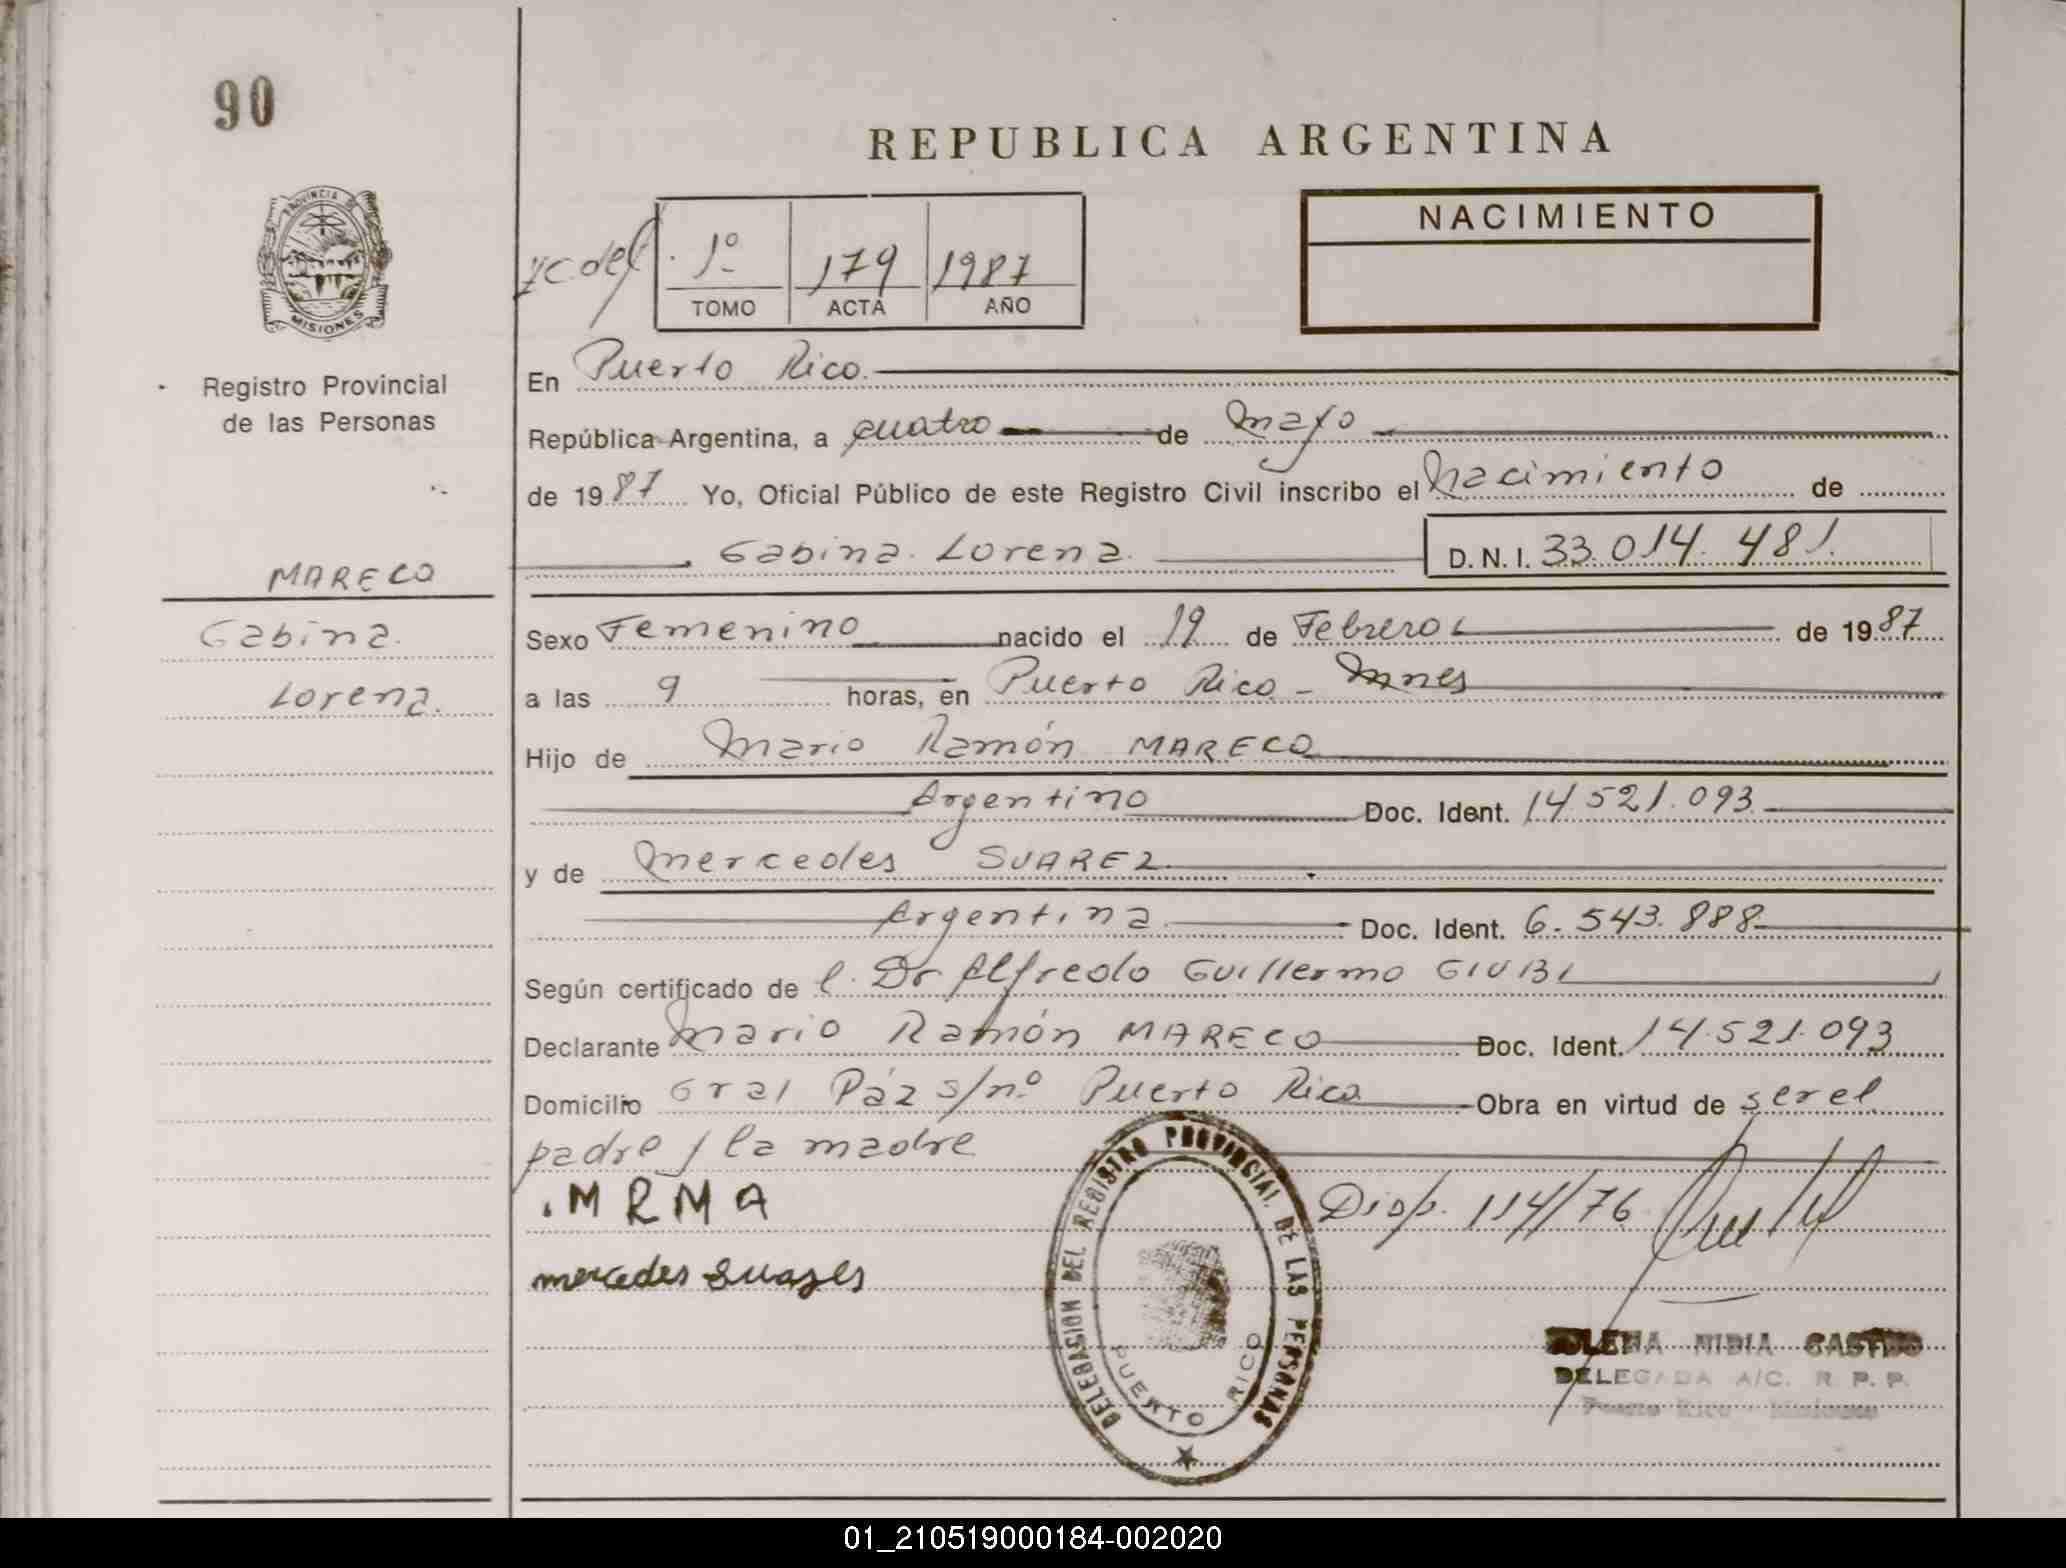 90
REPUBLICA ARGENTINA
PROVINCIA DE
MISIONES
Registro Provincial
de las Personas
1º 179 1987
TOMO ACTA AÑO
NACIMIENTO
En Puerto Rico
República Argentina, a cuatro de mayo
de 1987 Yo, Oficial Público de este Registro Civil inscribo el Nacimiento de
Gabina Lorena D.N.I. 33.014.481
MARECO
Gabina
Lorena
Sexo Femenino nacido el 19 de Febrero de 1987
a las 9 horas, en Puerto Rico - Mnes
Hijo de Mario Ramón MARECO
Argentino Doc. Ident. 14.521.093
y de Mercedes SUAREZ
Argentina Doc. Ident. 6.543.888
Según certificado de l. Dr Alfredo Guillermo GIUBI
Declarante Mario Ramón MARECO Doc. Ident. 14.521.093
Domicilio Gral Páz s/nº Puerto Rico Obra en virtud de ser el
padre / la madre
.MRMA Disp. 114/76
mercedes suares
DELEGACION DEL REGISTRO PROVINCIAL DE LAS PERSONAS
PUERTO RICO
NIDIA CASTRO
DELEGADA A/C. R. P. P.
Puerto Rico Misiones
01_210519000184-002020